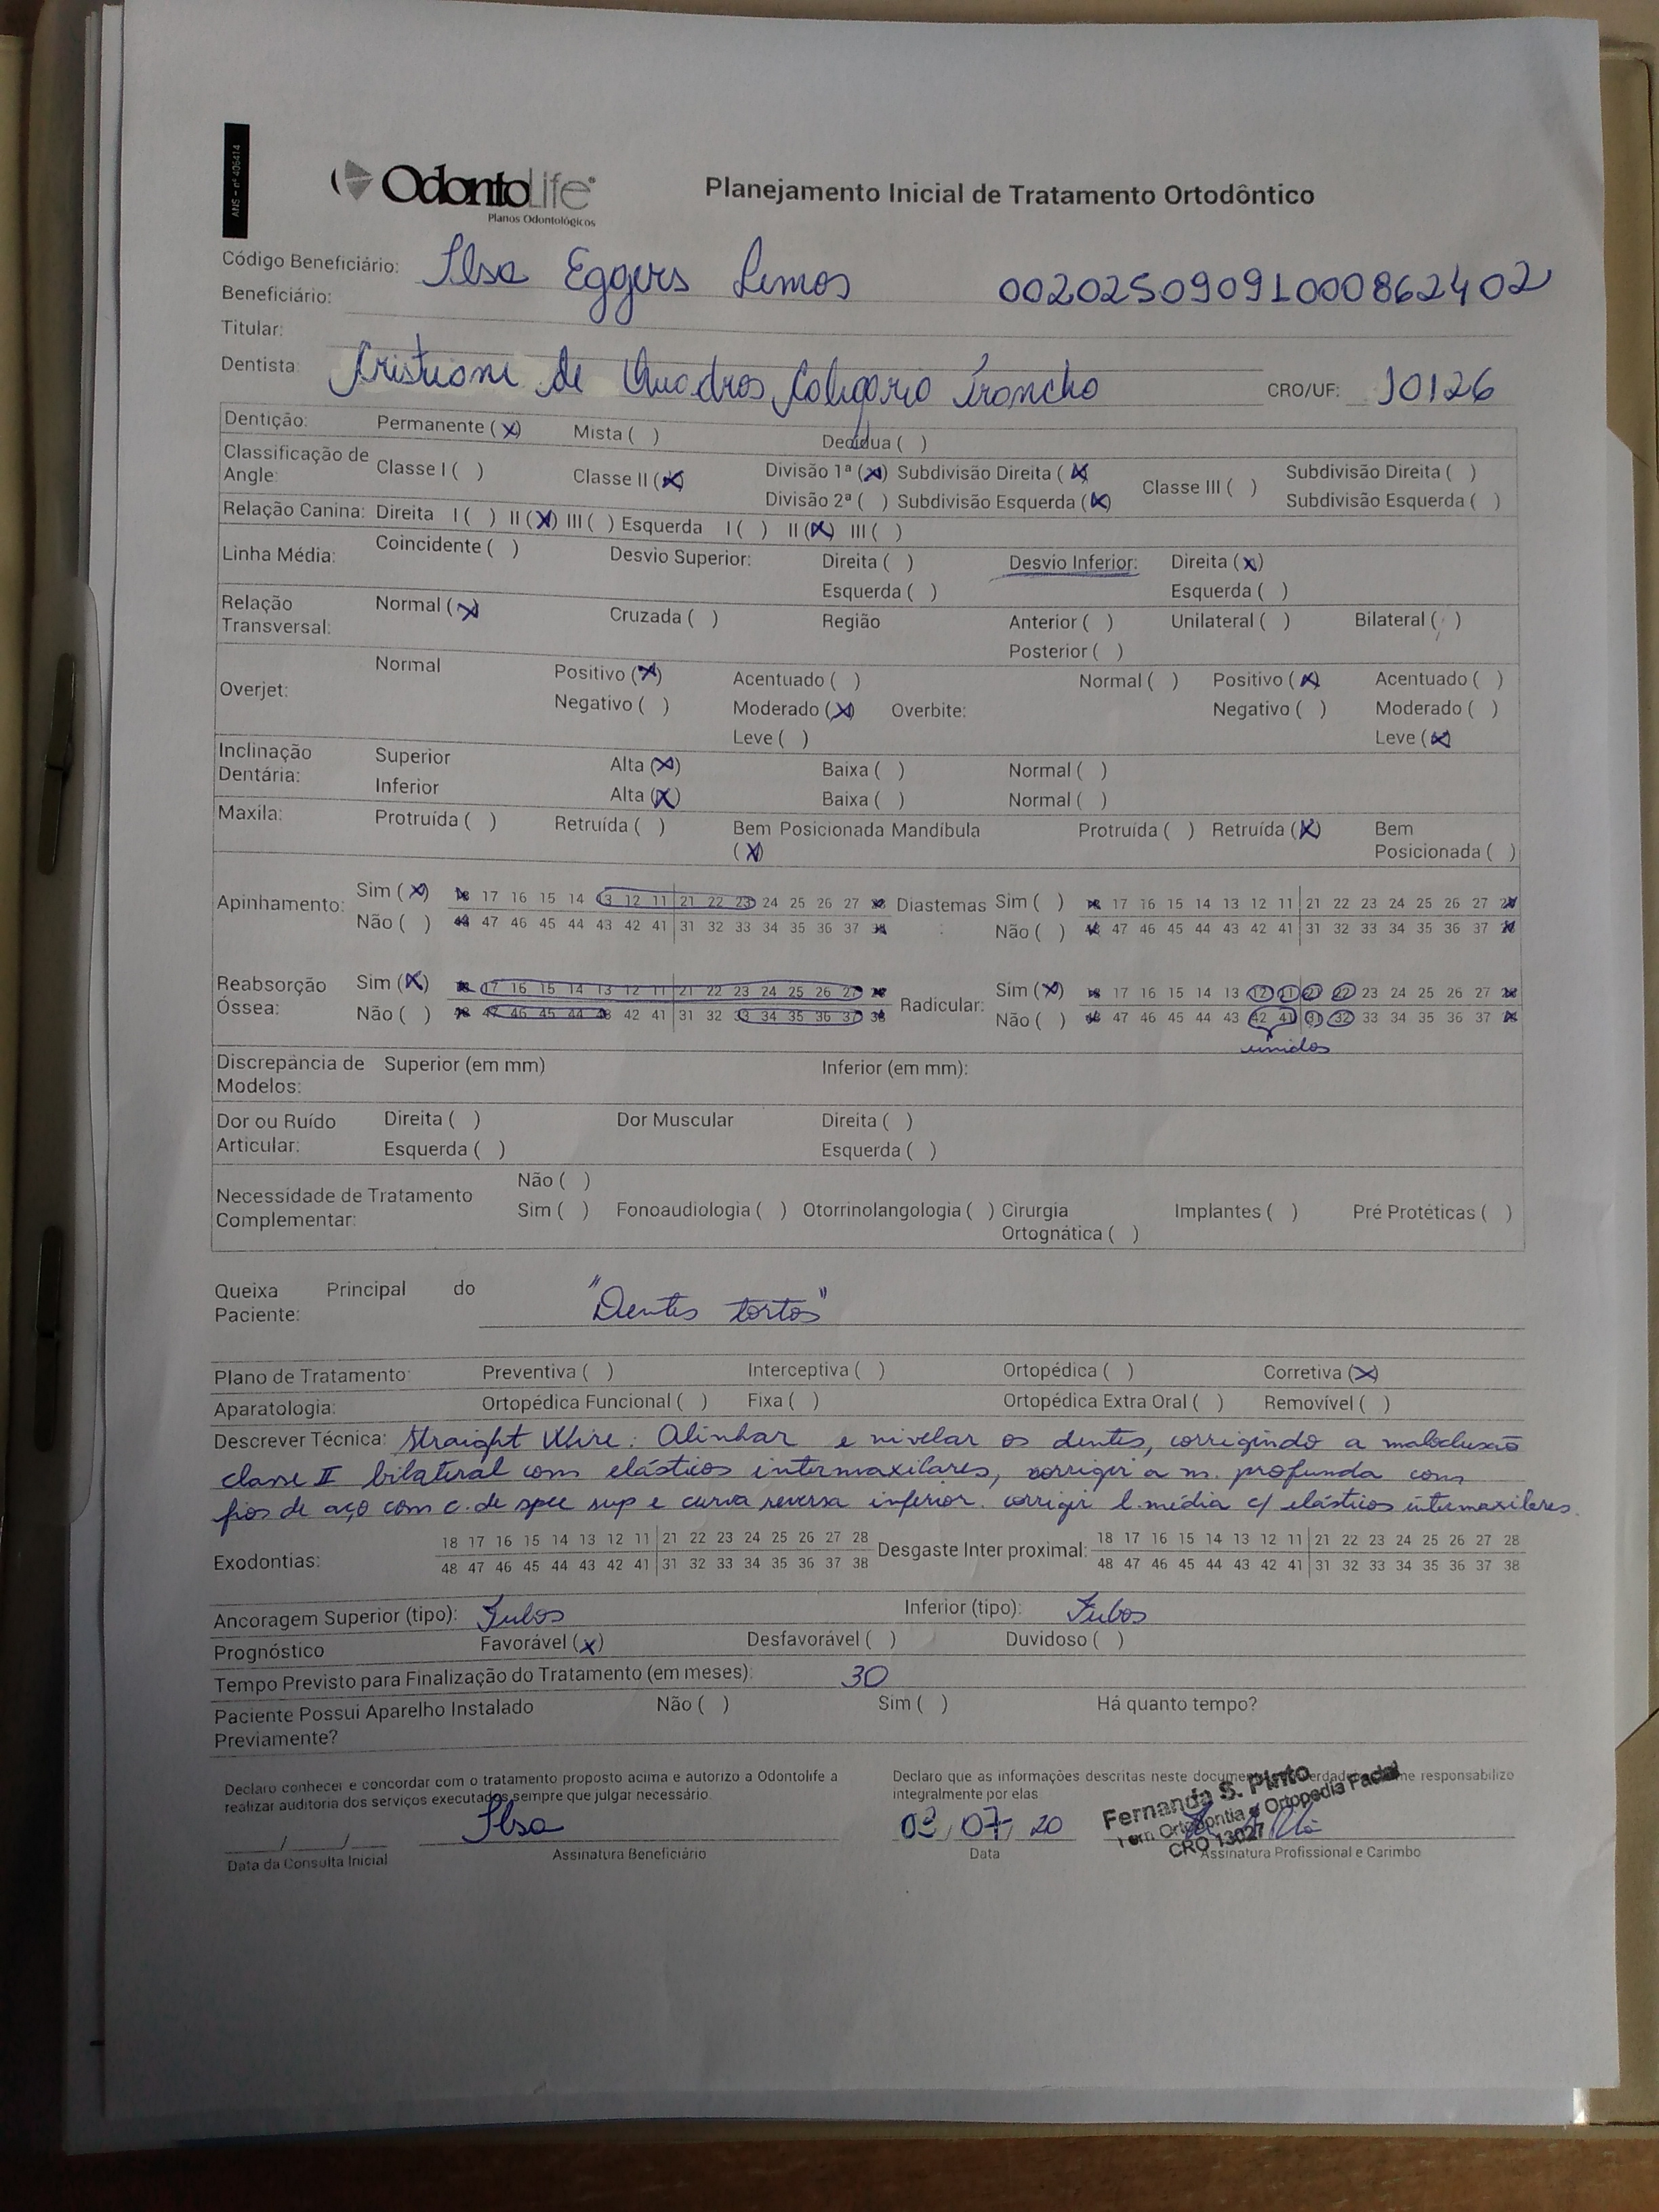 ANS - nº 406414
OdontoLife
Planos Odontológicos
Planejamento Inicial de Tratamento Ortodôntico
Código Beneficiário: Ilsa Eggers Lemos 00202509091000862402
Beneficiário:
Titular:
Dentista: Cristiane de Quadros Troncho CRO/UF: 10126
Dentição: Permanente (X) Mista ( ) Decídua ( )
Classificação de Angle: Classe I ( ) Classe II (X) Divisão 1ª (X) Subdivisão Direita (X) Classe III ( ) Subdivisão Direita ( )
Divisão 2ª ( ) Subdivisão Esquerda (X) Subdivisão Esquerda ( )
Relação Canina: Direita I ( ) II (X) III ( ) Esquerda I ( ) II (X) III ( )
Linha Média: Coincidente ( ) Desvio Superior: Direita ( ) Desvio Inferior: Direita (X)
Esquerda ( ) Esquerda ( )
Relação Transversal: Normal (X) Cruzada ( ) Região Anterior ( ) Unilateral ( ) Bilateral ( )
Posterior ( )
Overjet: Normal Positivo (X) Acentuado ( ) Normal ( ) Positivo (X) Acentuado ( )
Negativo ( ) Moderado (X) Overbite: Negativo ( ) Moderado ( )
Leve ( ) Leve (X)
Inclinação Dentária: Superior Alta (X) Baixa ( ) Normal ( )
Inferior Alta (X) Baixa ( ) Normal ( )
Maxila: Protruída ( ) Retruída ( ) Bem Posicionada (X) Mandíbula Protruída ( ) Retruída (X) Bem Posicionada ( )
Apinhamento: Sim (X) 18 17 16 15 14 13 12 11 21 22 23 24 25 26 27 28 Diastemas: Sim ( ) 18 17 16 15 14 13 12 11 21 22 23 24 25 26 27 28
Não ( ) 48 47 46 45 44 43 42 41 31 32 33 34 35 36 37 38 Não ( ) 48 47 46 45 44 43 42 41 31 32 33 34 35 36 37 38
Reabsorção Óssea: Sim (X) 18 17 16 15 14 13 12 11 21 22 23 24 25 26 27 28 Radicular: Sim (X) 18 17 16 15 14 13 12 11 21 22 23 24 25 26 27 28
Não ( ) 48 47 46 45 44 43 42 41 31 32 33 34 35 36 37 38 Não ( ) 48 47 46 45 44 43 42 41 31 32 33 34 35 36 37 38
unidos
Discrepância de Modelos: Superior (em mm) Inferior (em mm):
Dor ou Ruído Articular: Direita ( ) Dor Muscular Direita ( )
Esquerda ( ) Esquerda ( )
Não ( )
Necessidade de Tratamento Complementar: Sim ( ) Fonoaudiologia ( ) Otorrinolangologia ( ) Cirurgia Ortognática ( ) Implantes ( ) Pré Protéticas ( )
Queixa Principal do Paciente: "Dentes tortos"
Plano de Tratamento: Preventiva ( ) Interceptiva ( ) Ortopédica ( ) Corretiva (X)
Aparatologia: Ortopédica Funcional ( ) Fixa ( ) Ortopédica Extra Oral ( ) Removível ( )
Descrever Técnica: Straight Wire: Alinhar e nivelar os dentes, corrigindo a maloclusão
classe II bilateral com elásticos intermaxilares, corrigir a m. profunda com
fios de aço com c. de spee sup e curva reversa inferior. corrigir l. média c/ elásticos intermaxilares.
Exodontias: 18 17 16 15 14 13 12 11 21 22 23 24 25 26 27 28 Desgaste Inter proximal: 18 17 16 15 14 13 12 11 21 22 23 24 25 26 27 28
48 47 46 45 44 43 42 41 31 32 33 34 35 36 37 38 48 47 46 45 44 43 42 41 31 32 33 34 35 36 37 38
Ancoragem Superior (tipo): Tubos Inferior (tipo): Tubos
Prognóstico Favorável (X) Desfavorável ( ) Duvidoso ( )
Tempo Previsto para Finalização do Tratamento (em meses): 30
Paciente Possui Aparelho Instalado Previamente? Não ( ) Sim ( ) Há quanto tempo?
Declaro conhecer e concordar com o tratamento proposto acima e autorizo a Odontolife a
realizar auditoria dos serviços executados sempre que julgar necessário.
Declaro que as informações descritas neste me responsabilizo
integralmente por elas
Fernanda S. Pinto
em Ortodontia e Ortopedia Facial
CRO 13027
/ / Ilsa 03/07/20
Data da Consulta Inicial Assinatura Beneficiário Data Assinatura Profissional e Carimbo